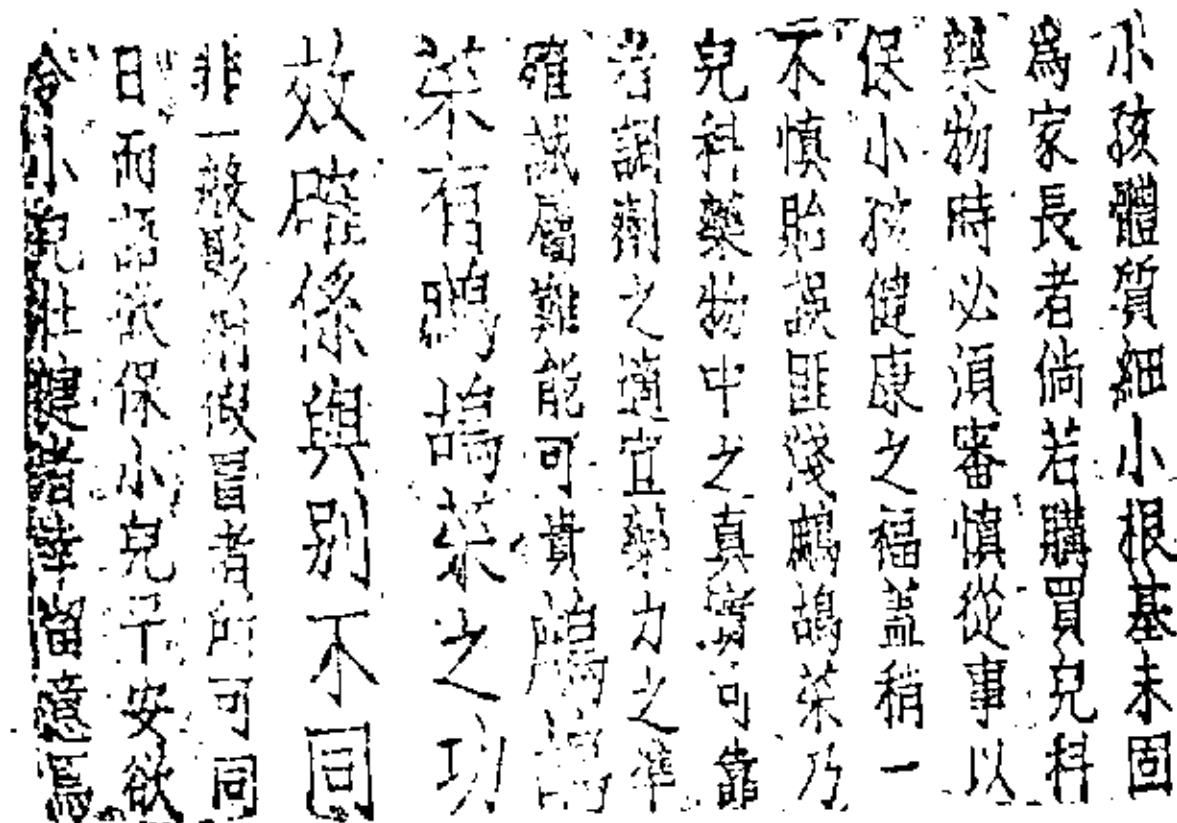 小孩體質細小根基未固
爲家長者倘若購買兒科
藥物時必須審慎從事以
保小孩健康之福蓋稍一
不慎貽誤匪淺鷓鴣菜乃
兒科藥物中之真實可靠
者調劑之適宜藥力之準
確誠屬難能可貴鷓鴣
菜有鷓鴣菜之功
效確係與別不同
非一般影射假冒者所可同
日而語欲保小兒平安欲
令小兒壯健